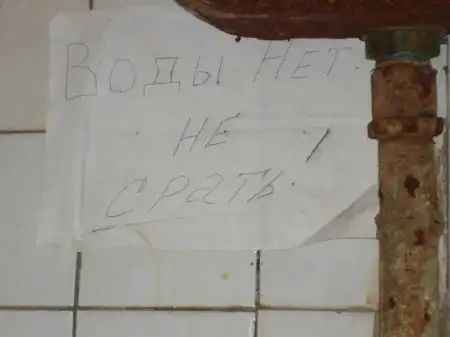 Воды нет.
не
срать.